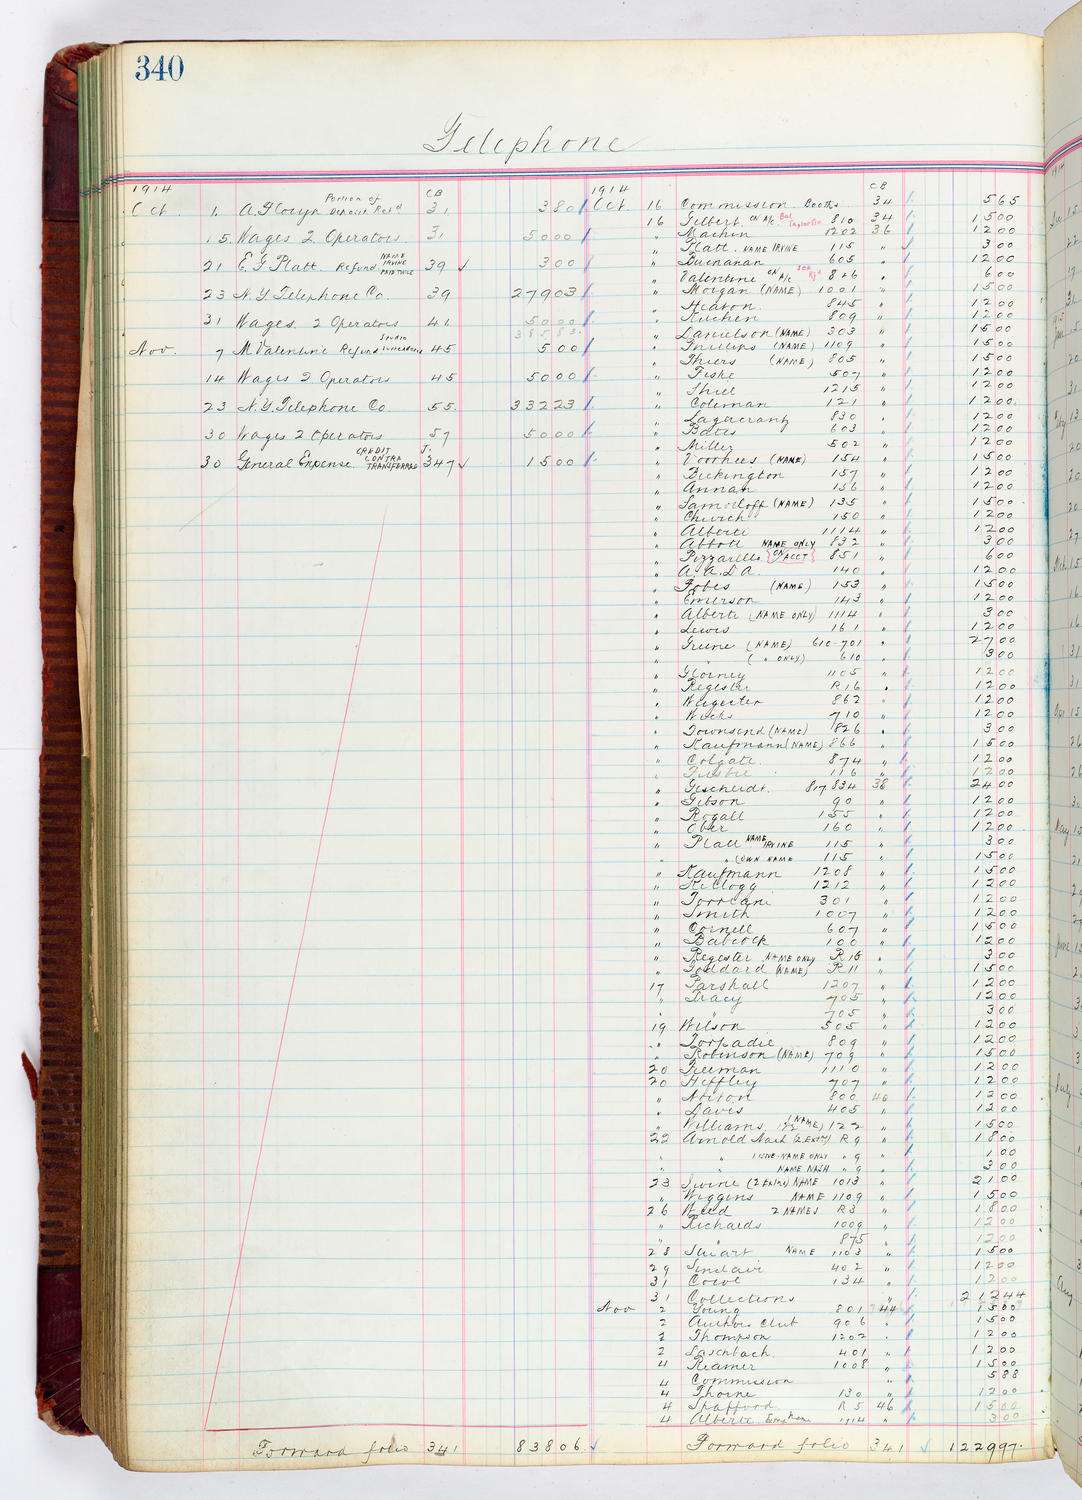 340
Telephone
1914 CB
Oct. 1. Portion of Deposit Ret'd 31 380
15. Wages 2 Operators. 31 5000
21 E. G. Platt. Refund NAME IRVINE PAID TWICE 39 300
23 N. Y. Telephone Co. 39 27903
31 Wages. 2 Operators 41 5000
38583
Nov. 7 M Valentine Refund Studio 45 500
14 Wages 2 Operators 45 5000
23 N. Y. Telephone Co. 55. 33223
30 Wages 2 Operators 57 5000
30 General Expense CREDIT CONTRA TRANSFERRED J. 347 1500
Forward folio 341 83806
1914 CB
Oct 16 Commission Booths 34 565
16 Gilbert ON A/c. Bal 810 34 1500
" Machin 1202 36 1200
" Platt. NAME IRVINE 115 " 300
" Buchanan 605 " 1200
" Valentine ON A/c 826 " 600
" Morgan (NAME) 1001 " 1500
" Heaton 845 " 1200
" Kitchen 809 " 1200
" Danielson (NAME) 303 " 1500
" Phillips (NAME) 1109 " 1500
" Thiers (NAME) 805 " 1500
" Fiske 507 " 1200
" Thiel 1215 " 1200
" Coleman 121 " 1200
" Lagercrantz 830 " 1200
" Bates 603 " 1200
" Miller 502 " 1200
" Voorhees (NAME) 154 " 1500
" Bickington 157 " 1200
" Annan 156 " 1200
" Samoiloff (NAME) 135 " 1500
" Church 150 " 1200
" Alberti 1114 " 1200
" Abbott NAME ONLY 832 " 300
" Pizzarello {ON ACCT} 851 " 600
" A. A. D A. 140 " 1200
" Fobes (NAME) 153 " 1500
" Emerson 143 " 1200
" Alberti (NAME ONLY) 1114 " 300
" Lewis 161 " 1200
" Greene (NAME) 610-701 " 2700
" " ( " ONLY) 610 300
" Glorney 1105 " 1200
" Register R16 " 1200
" Wagester 862 " 1200
" Wicks 710 " 1200
" Townsend (NAME) 826 " 300
" Kaufmann (NAME) 866 " 1500
" Colgate. 874 " 1200
" 116 " 1200
" Gescheidt. 817 834 38 2400
" Gibson 90 " 1200
" Rogall 155 " 1200
" Ober 160 " 1200
" Platt NAME IRVINE 115 " 300
" " (OWN NAME 115 " 1500
" Kaufmann 1208 " 1500
" Kellogg 1212 " 1200
" Torriani 301 " 1200
" Smith 1007 " 1200
" Cornell 607 " 1500
" Babcock 100 " 1200
" Regester NAME ONLY R16 " 300
" Goddard (NAME) R11 " 1500
17 Parshall 1207 " 1200
" Tracy 705 " 1200
" " 705 " 300
19 Wilson 505 " 1200
" Torpadie 809 " 1200
" Robinson (NAME) 709 " 1500
20 Freeman 1110 " 1200
20 Heffley 707 " 1200
" Norton 800 40 1200
" Davis 405 " 1200
" Williams (NAME) 122 " 1500
22 Arnold Nash (2 Ext'ns) R9 " 1800
" " 1 ISSUE-NAME ONLY " 9 " 100
" " NAME NASH " 9 " 300
23 Irvine (2 Extns) NAME 1013 " 2100
" Wiggins NAME 1109 " 1500
26 Weed 2 NAMES R3 " 1800
" Richards 1009 " 1200
" " 875 " 1200
28 Stuart NAME 1103 " 1500
29 Sinclair 402 " 1200
31 Cowl 134 " 1200
31 Collections " 21244
Nov 2 Young 801 44 1500
2 Authors Club 906 " 1500
2 Thompson 1202 " 1200
2 Laschbach. 401 " 1200
4 Reamer 1008 " 1500
4 Commission " 588
4 Thorne 130 " 1200
4 Spafford R5 46 1500
4 Alberti 1114 " 300
Forward folio 341 122997.